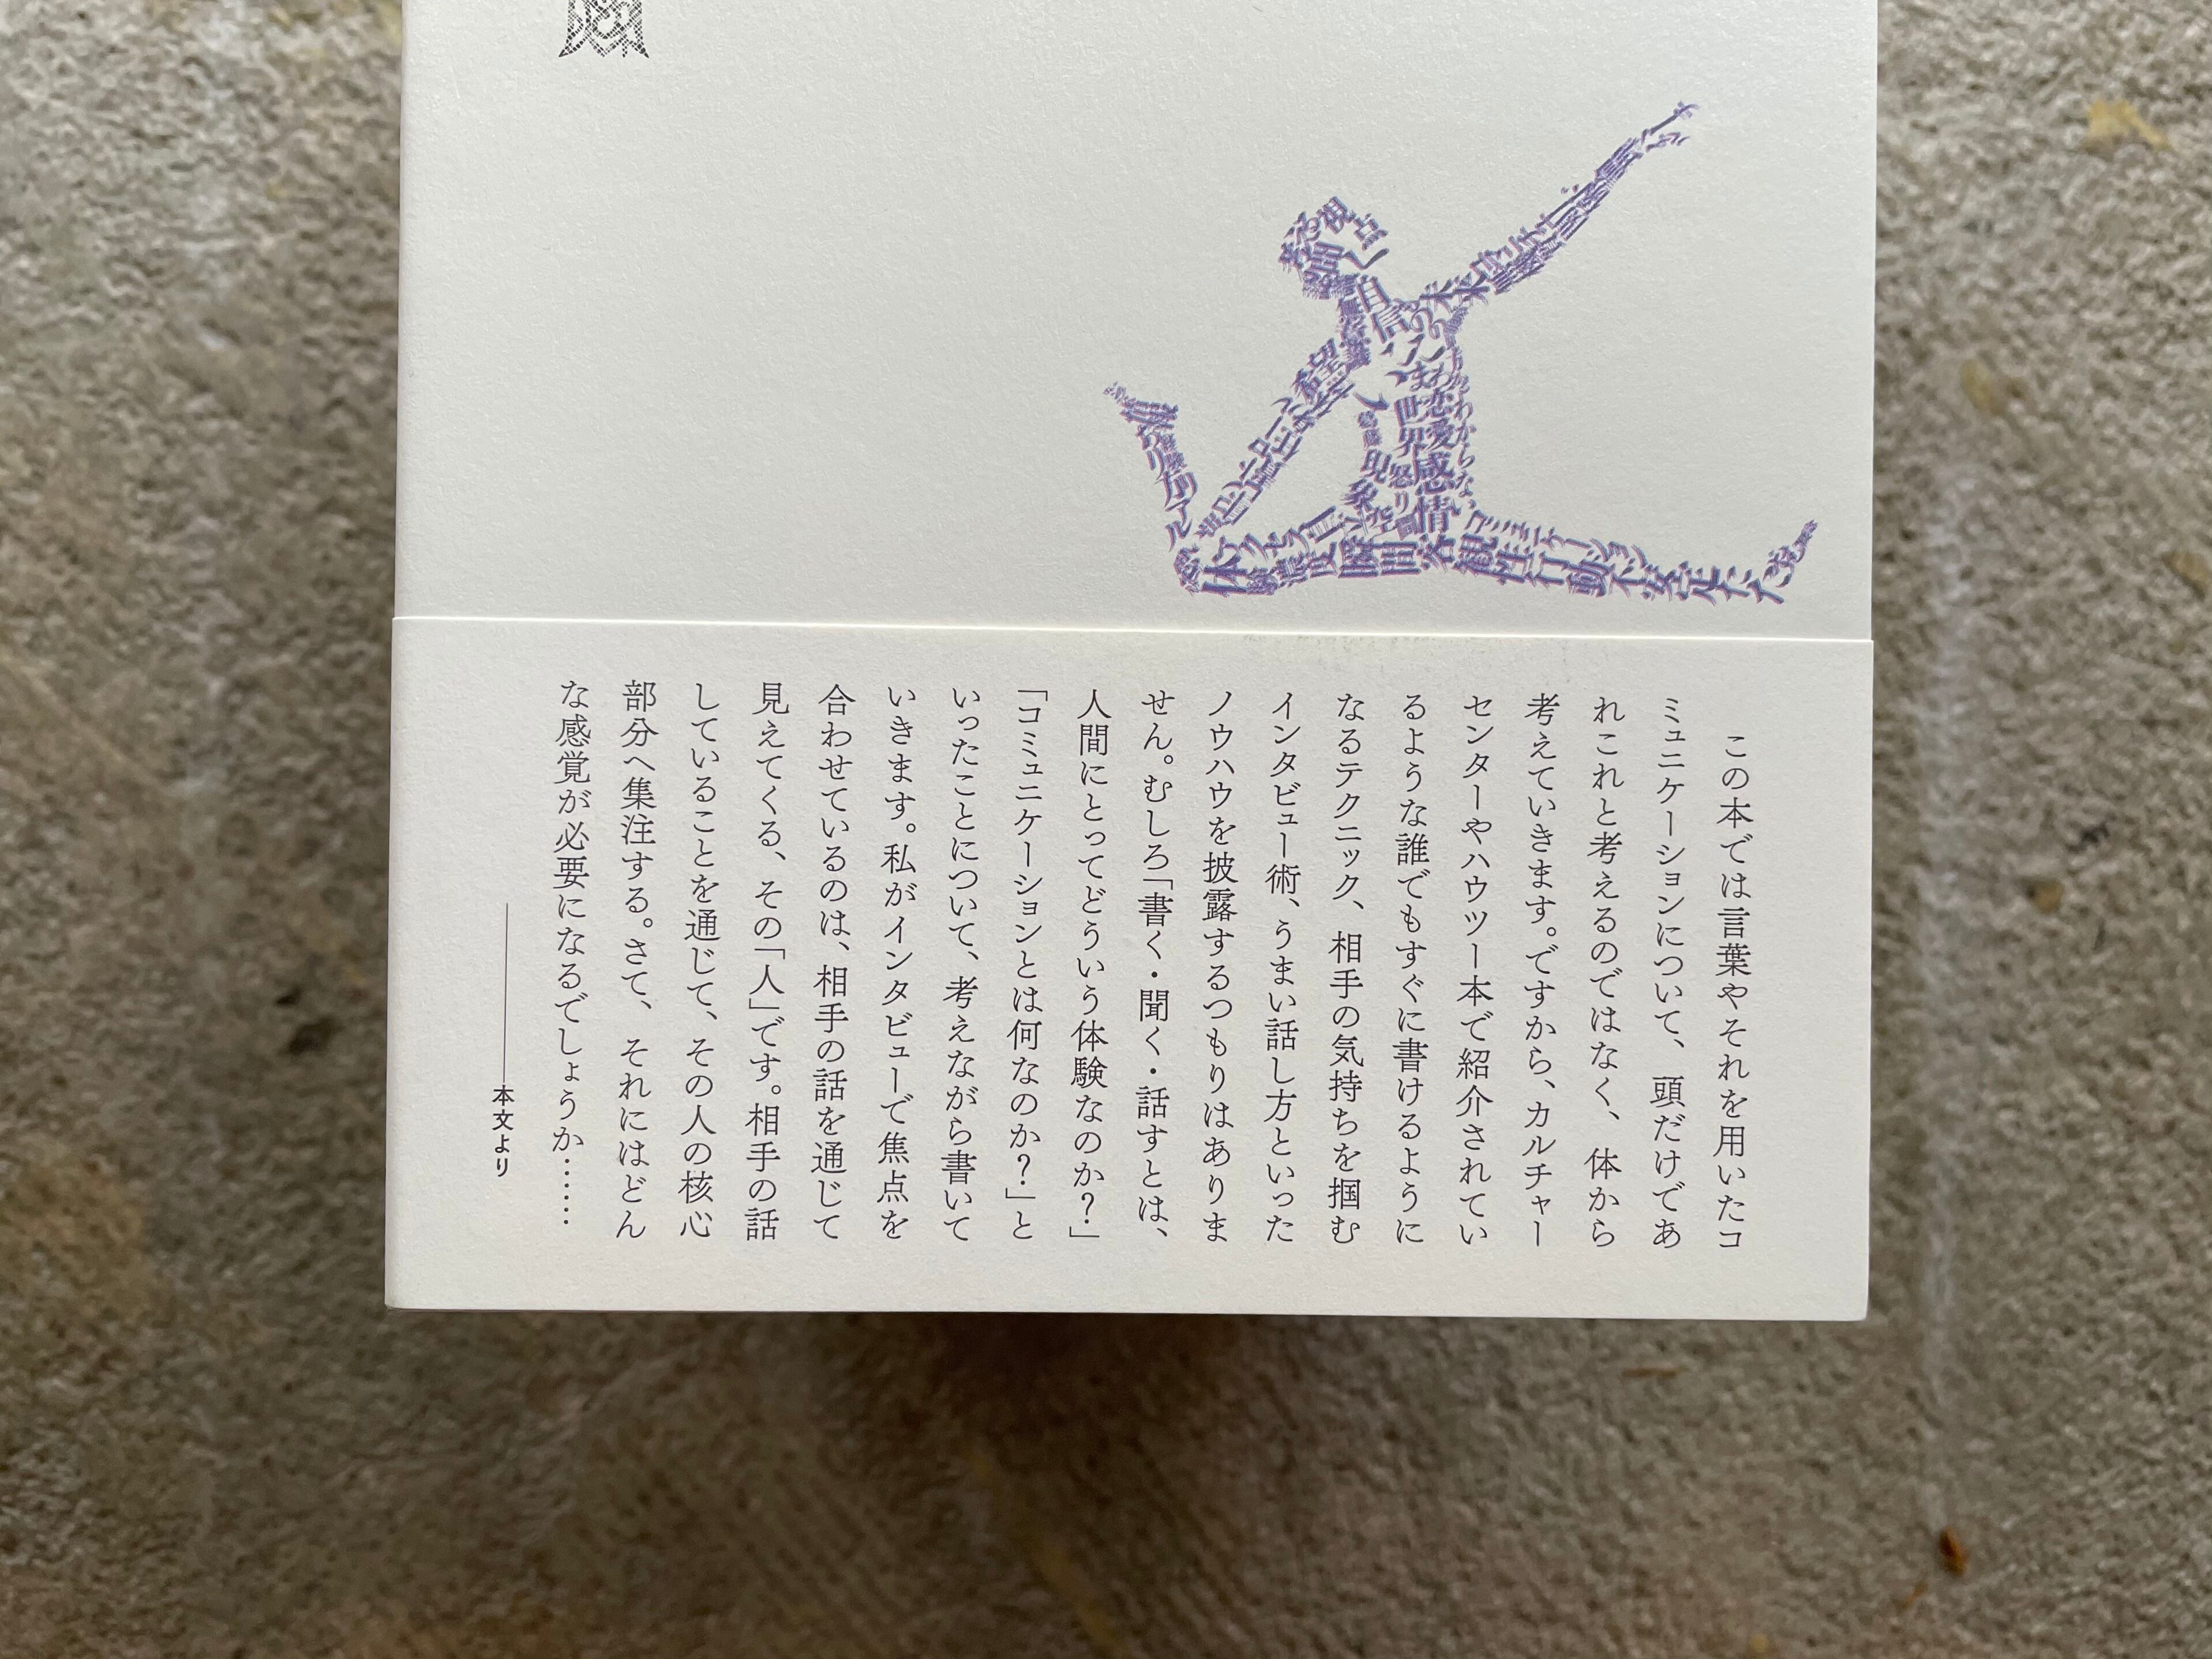 この本では言葉やそれを用いたコ
ミュニケーションについて、頭だけであ
れこれと考えるのではなく、体から
考えていきます。ですから、カルチャー
センターやハウツー本で紹介されてい
るような誰でもすぐに書けるように
なるテクニック、相手の気持ちを掴む
インタビュー術、うまい話し方といった
ノウハウを披露するつもりはありま
せん。むしろ「書く・聞く・話すとは、
人間にとってどういう体験なのか？」
「コミュニケーションとは何なのか？」と
いったことについて、考えながら書いて
いきます。私がインタビューで焦点を
合わせているのは、相手の話を通じて
見えてくる、その「人」です。相手の話
していることを通じて、その人の核心
部分へ集注する。さて、それにはどん
な感覚が必要になるでしょうか……
――本文より
視点
聞く
自信
希望
世界
恋愛
感情
わからない
現象
怒り
コミュニケーション
体
態度
瞬間
客観性
行動
不安定